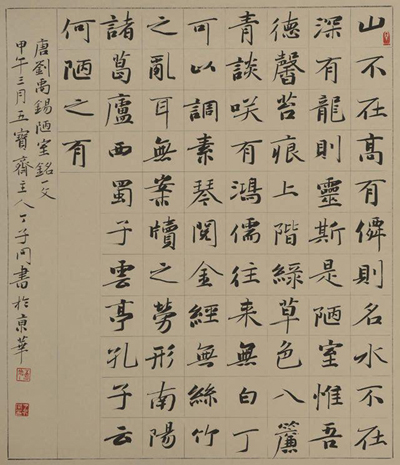 山不在高有僊則名水不在
深有龍則靈斯是陋室惟吾
德馨苔痕上階綠草色入簾
青談咲有鴻儒往來無白丁
可以調素琴閱金經無絲竹
之亂耳無案牘之勞形南陽
諸葛廬西蜀子雲亭孔子云
何陋之有
唐劉禹錫陋室銘一文
甲午三月五寶齋主人丁子同書於京華